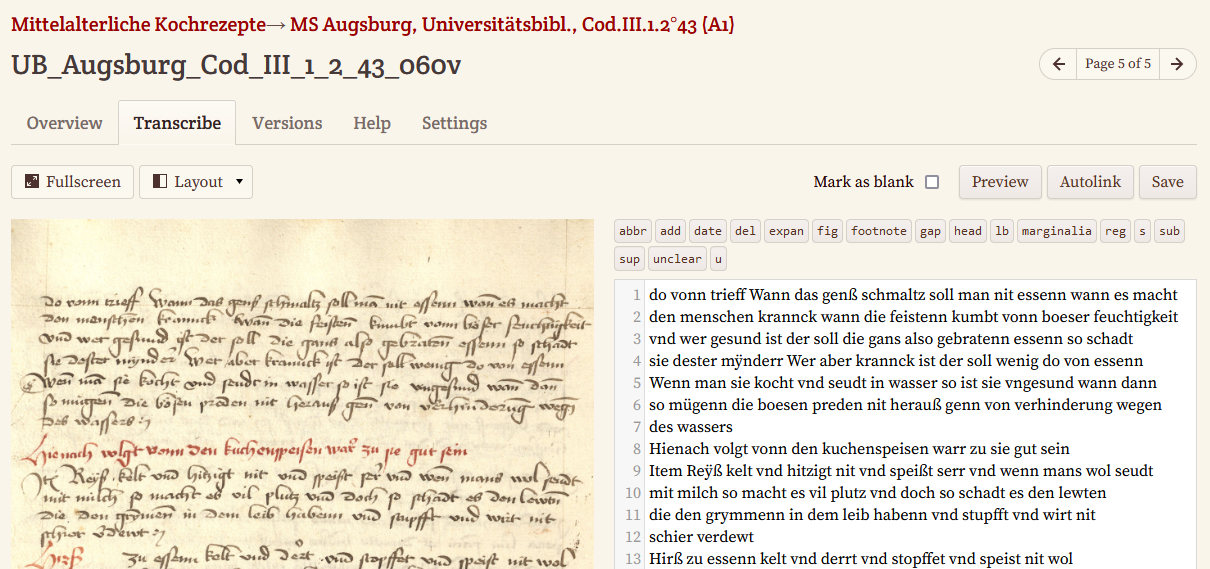 Mittelalterliche Kochrezepte→ MS Augsburg, Universitätsbibl., Cod.III.1.2°43 (A1)
UB_Augsburg_Cod_III_1_2_43_060v
← Page 5 of 5 →
Overview Transcribe Versions Help Settings
Fullscreen Layout ▼
Mark as blank Preview Autolink Save
do vonn trieff Wann das genß schmaltz soll mā nit essenn wān es macht
den menschen krannck wān die feistenn kumbt vonn böser feuchtigkeit
vnd wer gesund ist der soll die gans also gebratenn essenn so schadt
sie dester mynder Wer aber krannck ist der soll wenig do von essenn
Wenn mā sie kocht vnd seudt in wasser so ist sie vngesund wān dan
so mügenn die bösen preden nit herauß genn von verhinderūg wegen
des wassers
Hienach volgt vonn den kuchenspeisen war zu sie gut sein
Itē Reyß kelt vnd hitzigt nit vnd speist ser vnd wen mans wol seudt
mit milch so macht es vil plutz vnd doch so schadt es den lewten
die den grymen in dem leib habenn vnd stupfft vnd wirt nit
schier vdewt
Hirß zu essenn kelt vnd dert vnd stopffet vnd speist nit wol
abbr add date del expan fig footnote gap head lb marginalia reg s sub
sup unclear u
1 do vonn trieff Wann das genß schmaltz soll man nit essenn wann es macht
2 den menschen krannck wann die feistenn kumbt vonn boeser feuchtigkeit
3 vnd wer gesund ist der soll die gans also gebratenn essenn so schadt
4 sie dester mÿnderr Wer aber krannck ist der soll wenig do von essenn
5 Wenn man sie kocht vnd seudt in wasser so ist sie vngesund wann dann
6 so mügenn die boesen preden nit herauß genn von verhinderung wegen
7 des wassers
8 Hienach volgt vonn den kuchenspeisen warr zu sie gut sein
9 Item Reÿß kelt vnd hitzigt nit vnd speißt serr vnd wenn mans wol seudt
10 mit milch so macht es vil plutz vnd doch so schadt es den lewten
11 die den grymmenn in dem leib habenn vnd stupfft vnd wirt nit
12 schier verdewt
13 Hirß zu essenn kelt vnd derrt vnd stopffet vnd speist nit wol